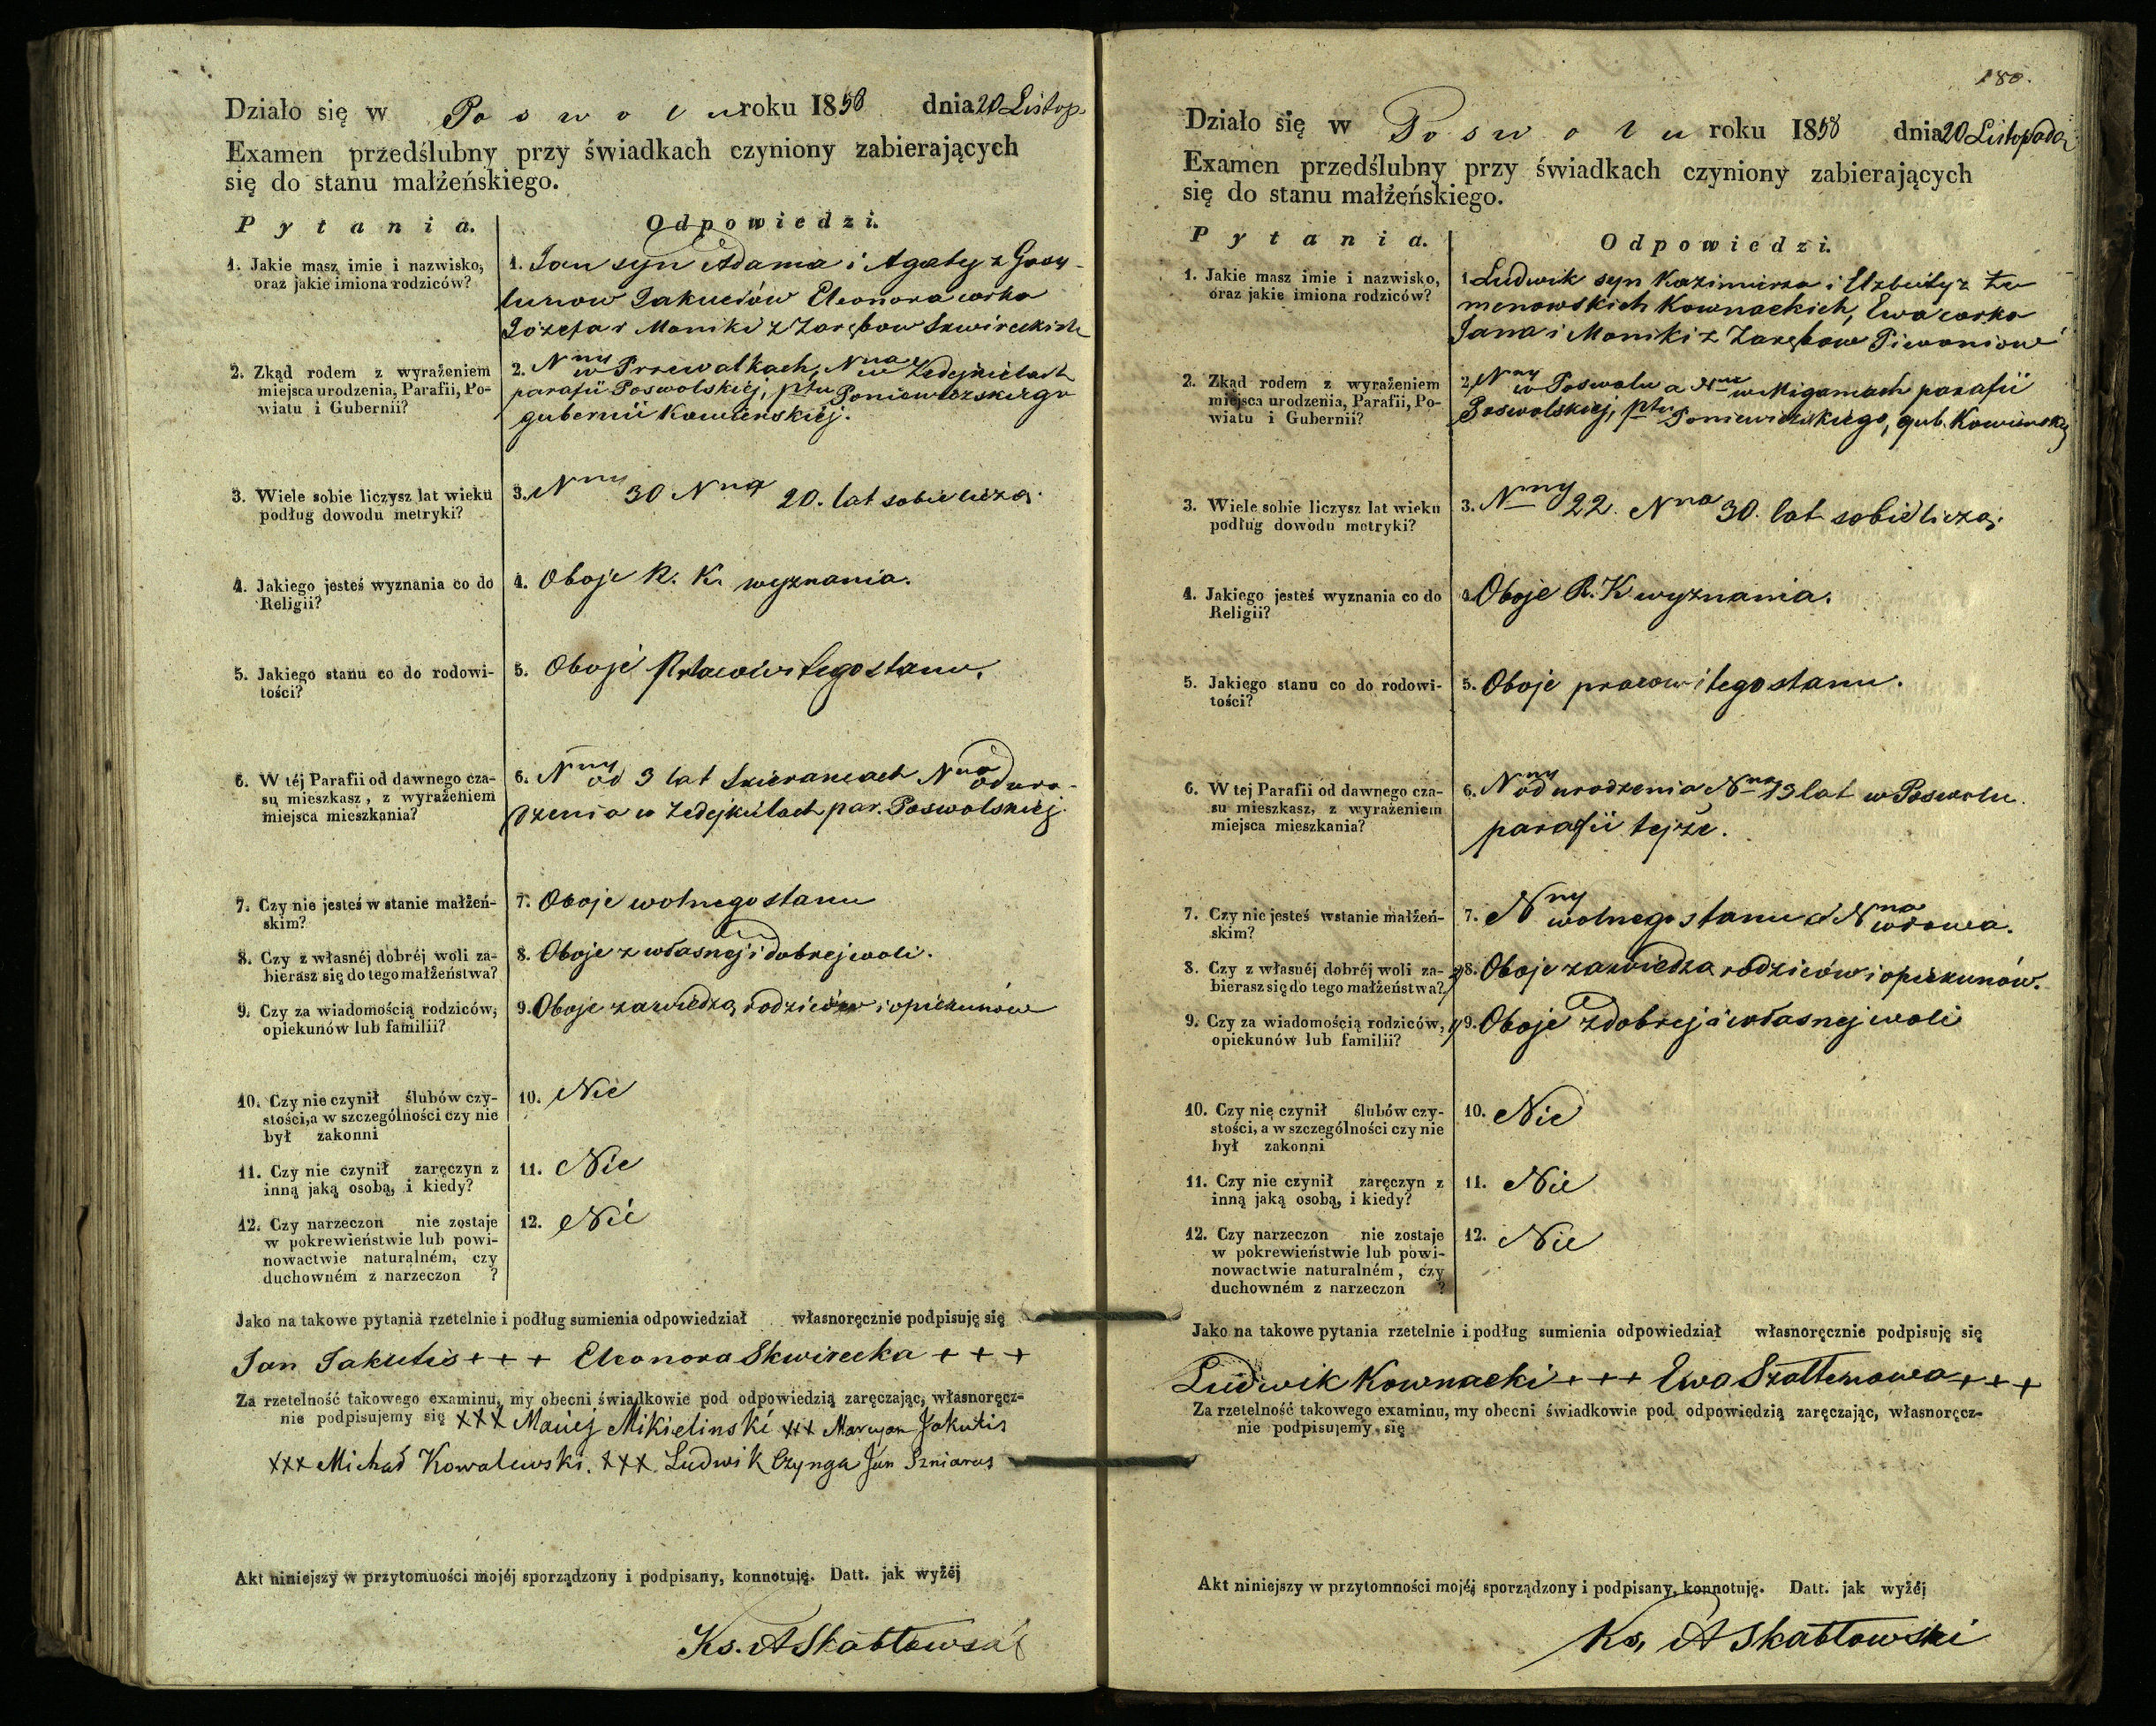 Działo się w Poswolu roku 1858 dnia 20 Listop.
Examen przedślubny przy świadkach czyniony zabierających
się do stanu małżeńskiego.
Pytania. Odpowiedzi.
1. Jakie masz imie i nazwisko,
oraz jakie imiona rodziców?
1. Jan syn Adama i Agaty z
Jakuciów Eleonora corka
Józefa i Moniki z Zarębow Skwireckich
2. Zkąd rodem z wyrażeniem
miejsca urodzenia, Parafii, Po-
wiatu i Gubernii?
2. Nny w Przewalkach, Nna w
parafii Poswolskiej, ptu Poniewiezskiego
gubernii Kowienskiej.
3. Wiele sobie liczysz lat wieku
podług dowodu metryki?
3. Nny 30 Nna 20. lat sobie liczą.
4. Jakiego jesteś wyznania co do
Religii?
4. Oboje R. K. wyznania.
5. Jakiego stanu co do rodowi-
tości?
5. Oboje Pracowitego stanu.
6. W téj Parafii od dawnego cza-
su mieszkasz, z wyrażeniem
miejsca mieszkania?
6. Nny od 3 lat Nna od uro-
dzenia w par. Poswolskiej.
7. Czy nie jesteś w stanie małżeń-
skim?
7. Oboje wolnego stanu
8. Czy z własnéj dobréj woli za-
bierasz się do tego małżeństwa?
8. Oboje z własnej i dobrej woli.
9. Czy za wiadomością rodziców,
opiekunów lub familii?
9. Oboje za wiedzą rodziców i opiekunów
10. Czy nie czynił ślubów czy-
stości, a w szczególności czy nie
był zakonni
10. Nie
11. Czy nie czynił zaręczyn z
inną jaką osobą, i kiedy?
11. Nie
12. Czy narzeczon nie zostaje
w pokrewieństwie lub powi-
nowactwie naturalném, czy
duchowném z narzeczon ?
12. Nie
Jako na takowe pytania rzetelnie i podług sumienia odpowiedział własnoręcznie podpisuję się
Jan Jakutis +++ Eleonora Skwirecka +++
Za rzetelność takowego examinu, my obecni świadkowie pod odpowiedzią zaręczając, własnoręcz-
nie podpisujemy się XXX Maciej Mikielinski XXX Maryan Jakutis
XXX Michał Kowalewski. XXX. Ludwik Czynga Jan Szniaras
Akt niniejszy w przytomuości mojéj sporządzony i podpisany, konnotuję. Datt. jak wyżéj
Ks. A Skabłowski
180.
Działo się w Poswolu roku 1858 dnia 20 Listopada
Examen przedślubny przy świadkach czyniony zabierających
się do stanu małżeńskiego.
Pytania. Odpowiedzi.
1. Jakie masz imie i nazwisko,
oraz jakie imiona rodziców?
1. Ludwik syn Kazimierza i Elzbiety z
Kownackich, Ewa corka
Jana i Moniki z Zarębow Piwoniow
2. Zkąd rodem z wyrażeniem
miejsca urodzenia, Parafii, Po-
wiatu i Gubernii?
2. Nny w Poswolu a Nna w Miganiach parafii
Poswolskiej, ptu Poniewiezskiego, gub. Kowienskiej
3. Wiele sobie liczysz lat wieku
podług dowodu metryki?
3. Nny 22. Nna 30. lat sobie liczą.
4. Jakiego jesteś wyznania co do
Religii?
4. Oboje R. K wyznania.
5. Jakiego stanu co do rodowi-
tości?
5. Oboje pracowitego stanu.
6. W tej Parafii od dawnego cza-
su mieszkasz, z wyrażeniem
miejsca mieszkania?
6. Nny od urodzenia Nna 13 lat w Poswolu.
parafii tejże.
7. Czy nie jesteś wstanie małżeń-
skim?
7. Nny wolnego stanu a Nna wdowa.
8. Czy z własnéj dobréj woli za-
bierasz się do tego małżeństwa?
8. Oboje za wiedza rodziców i opiekunów.
9. Czy za wiadomością rodziców,
opiekunów lub familii?
9. Oboje z dobrej i własnej woli
10. Czy nie czynił ślubów czy-
stości, a w szczególności czy nie
był zakonni
10. Nie
11. Czy nie czynił zaręczyn z
inną jaką osobą, i kiedy?
11. Nie
12. Czy narzeczon nie zostaje
w pokrewieństwie lub powi-
nowactwie naturalném, czy
duchowném z narzeczon ?
12. Nie
Jako na takowe pytania rzetelnie i podług sumienia odpowiedział własnoręcznie podpisuję się
Ludwik Kownacki +++ Ewa Szaltenowa +++
Za rzetelność takowego examinu, my obecni świadkowie pod odpowiedzią zaręczając, własnoręcz-
nie podpisujemy się
Akt niniejszy w przytomności mojéj sporządzony i podpisany, konnotuję. Datt. jak wyżéj
Ks, A Skabłowski